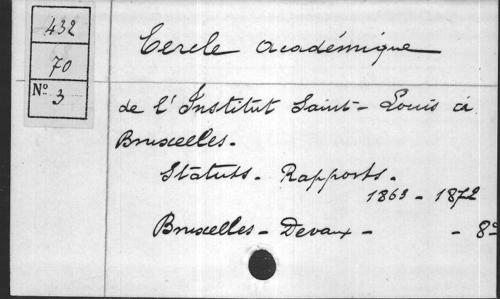 432
70
Nº 3
Cercle académique
de l'Institut Saint-Louis à
Bruxelles.
Statuts. Rapports.
1863 - 1872
Bruxelles - Devaux - - 8º